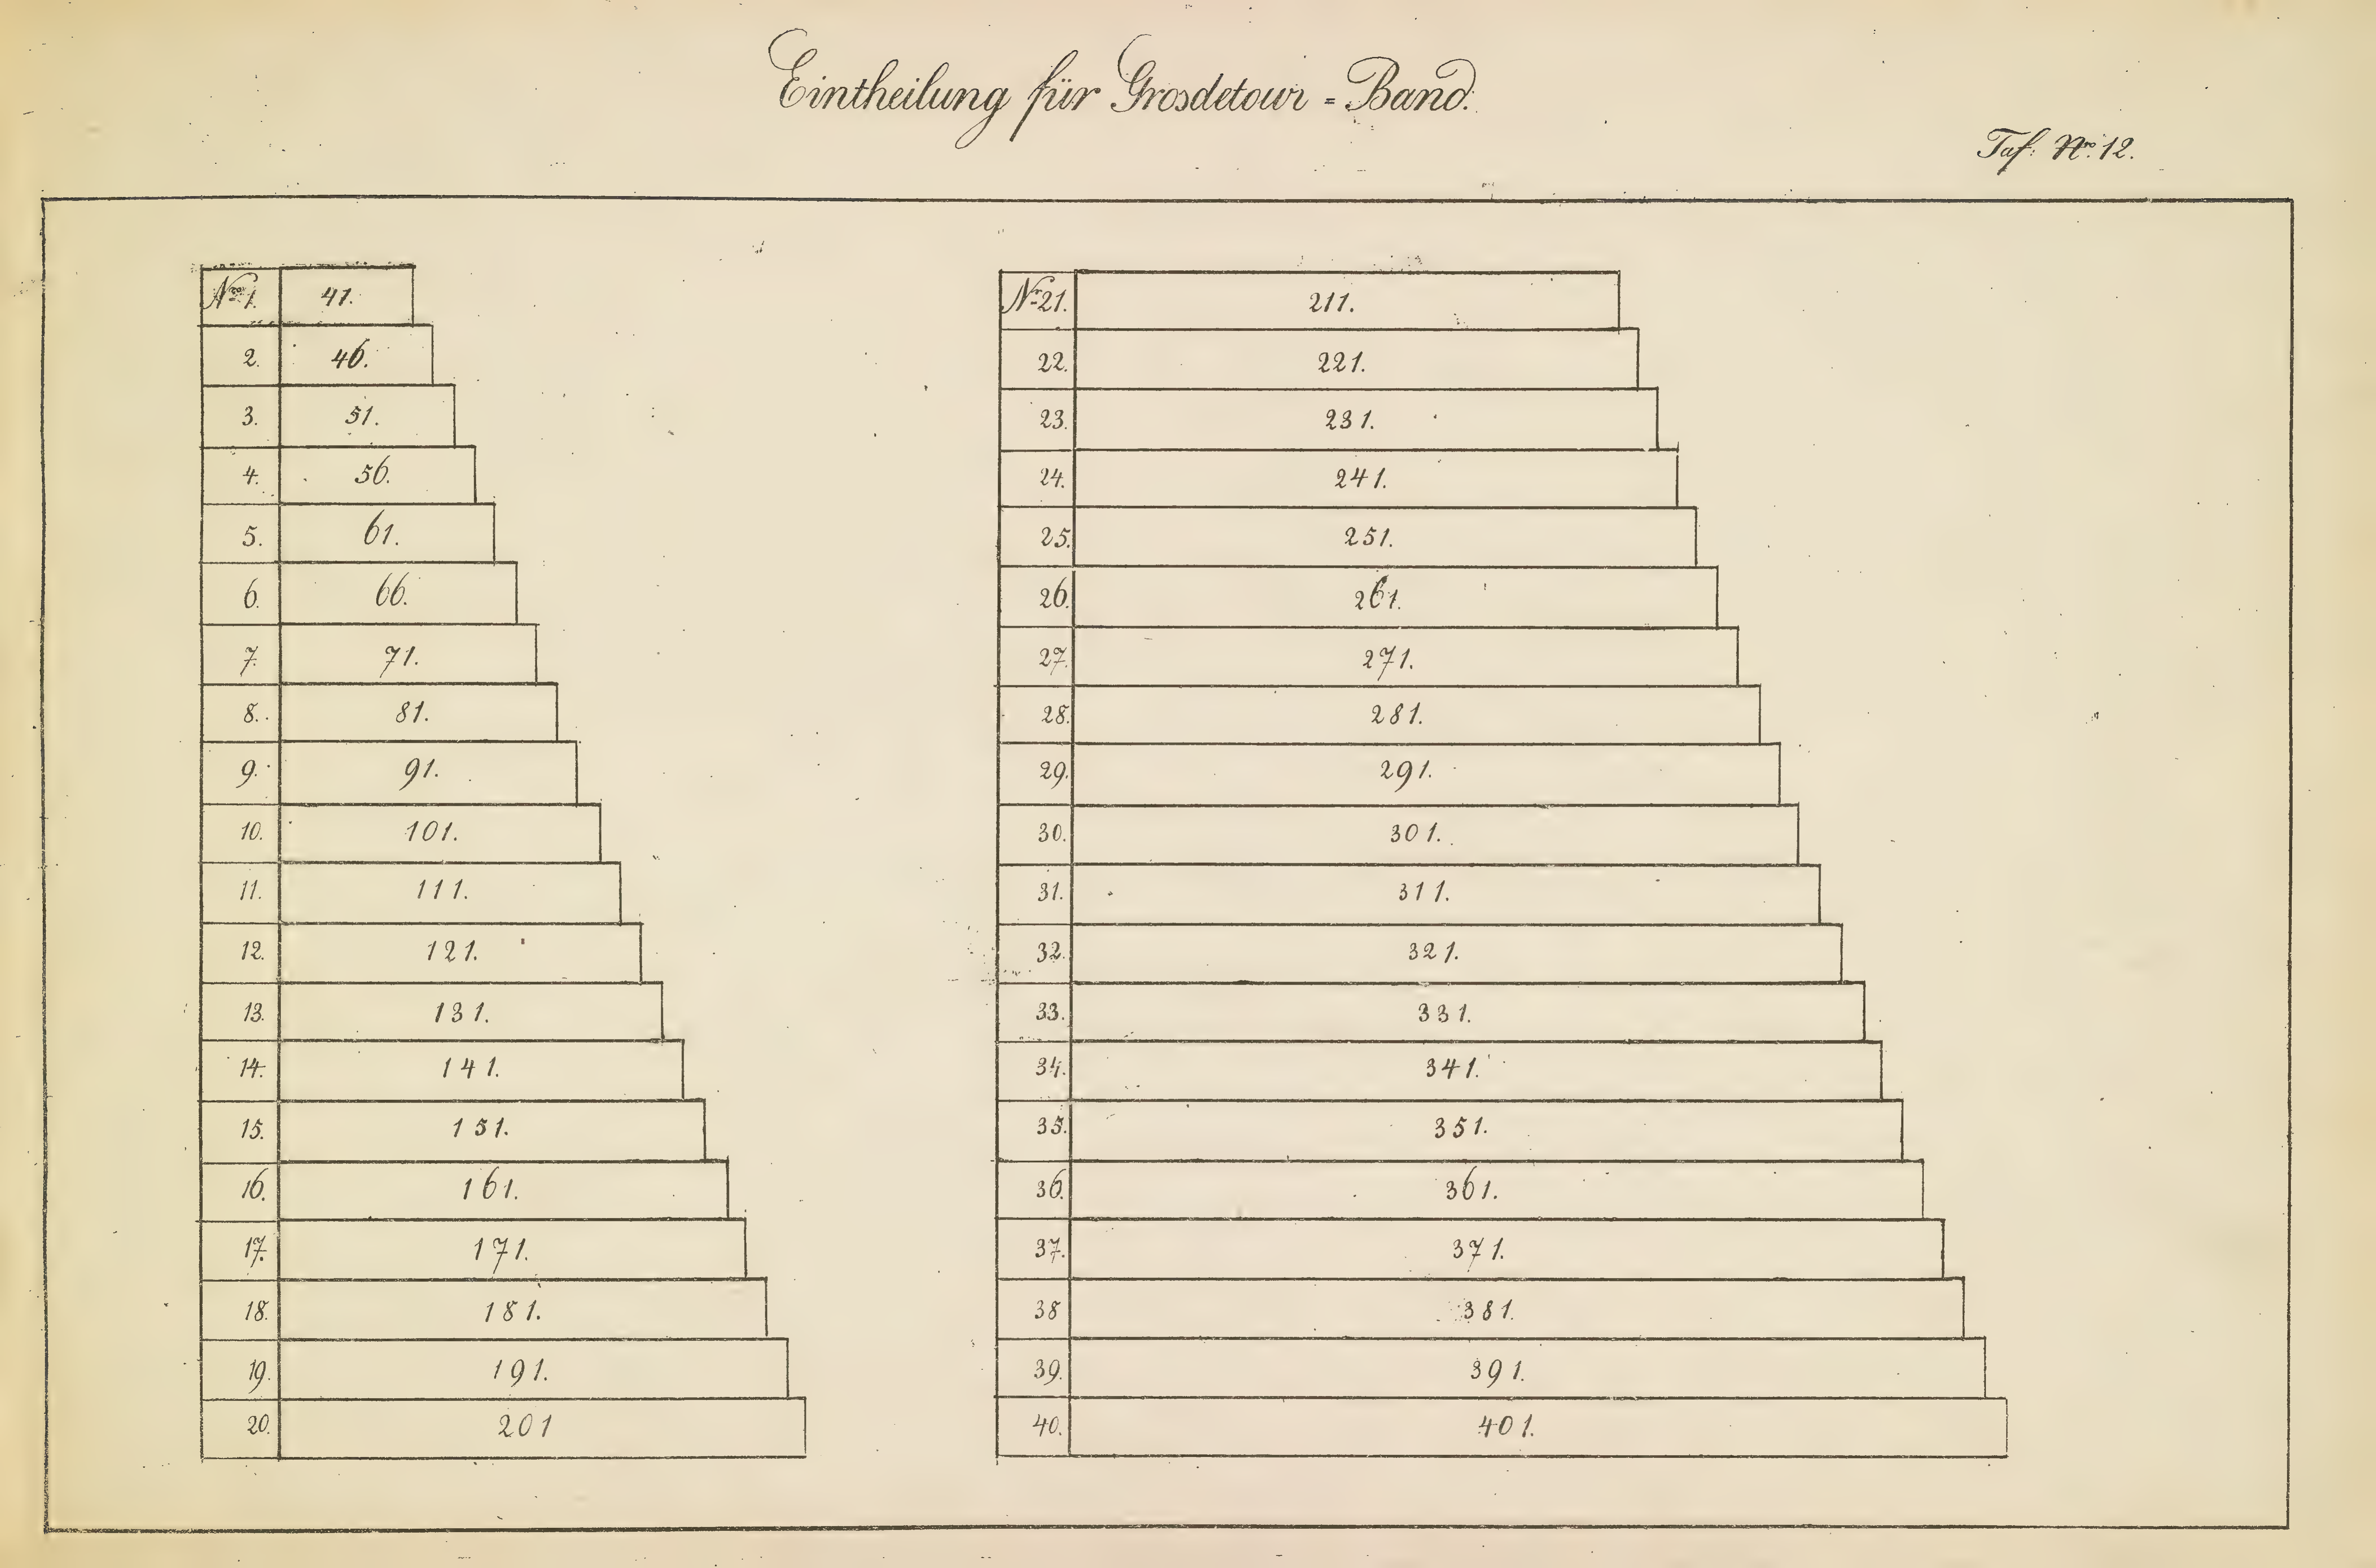 Eintheilung für Grosdetour = Band.
Taf: Nro. 12.
Nro 1. 41.
2. 46.
3. 51.
4. 56.
5. 61.
6. 66.
7. 71.
8. 81.
9. 91.
10. 101.
11. 111.
12. 121.
13. 131.
14. 141.
15. 151.
16. 161.
17. 171.
18. 181.
19. 191.
20. 201
Nr. 21. 211.
22. 221.
23. 231.
24. 241.
25. 251.
26. 261.
27. 271.
28. 281.
29. 291.
30. 301.
31. 311.
32. 321.
33. 331.
34. 341.
35. 351.
36. 361.
37. 371.
38 381.
39. 391.
40. 401.